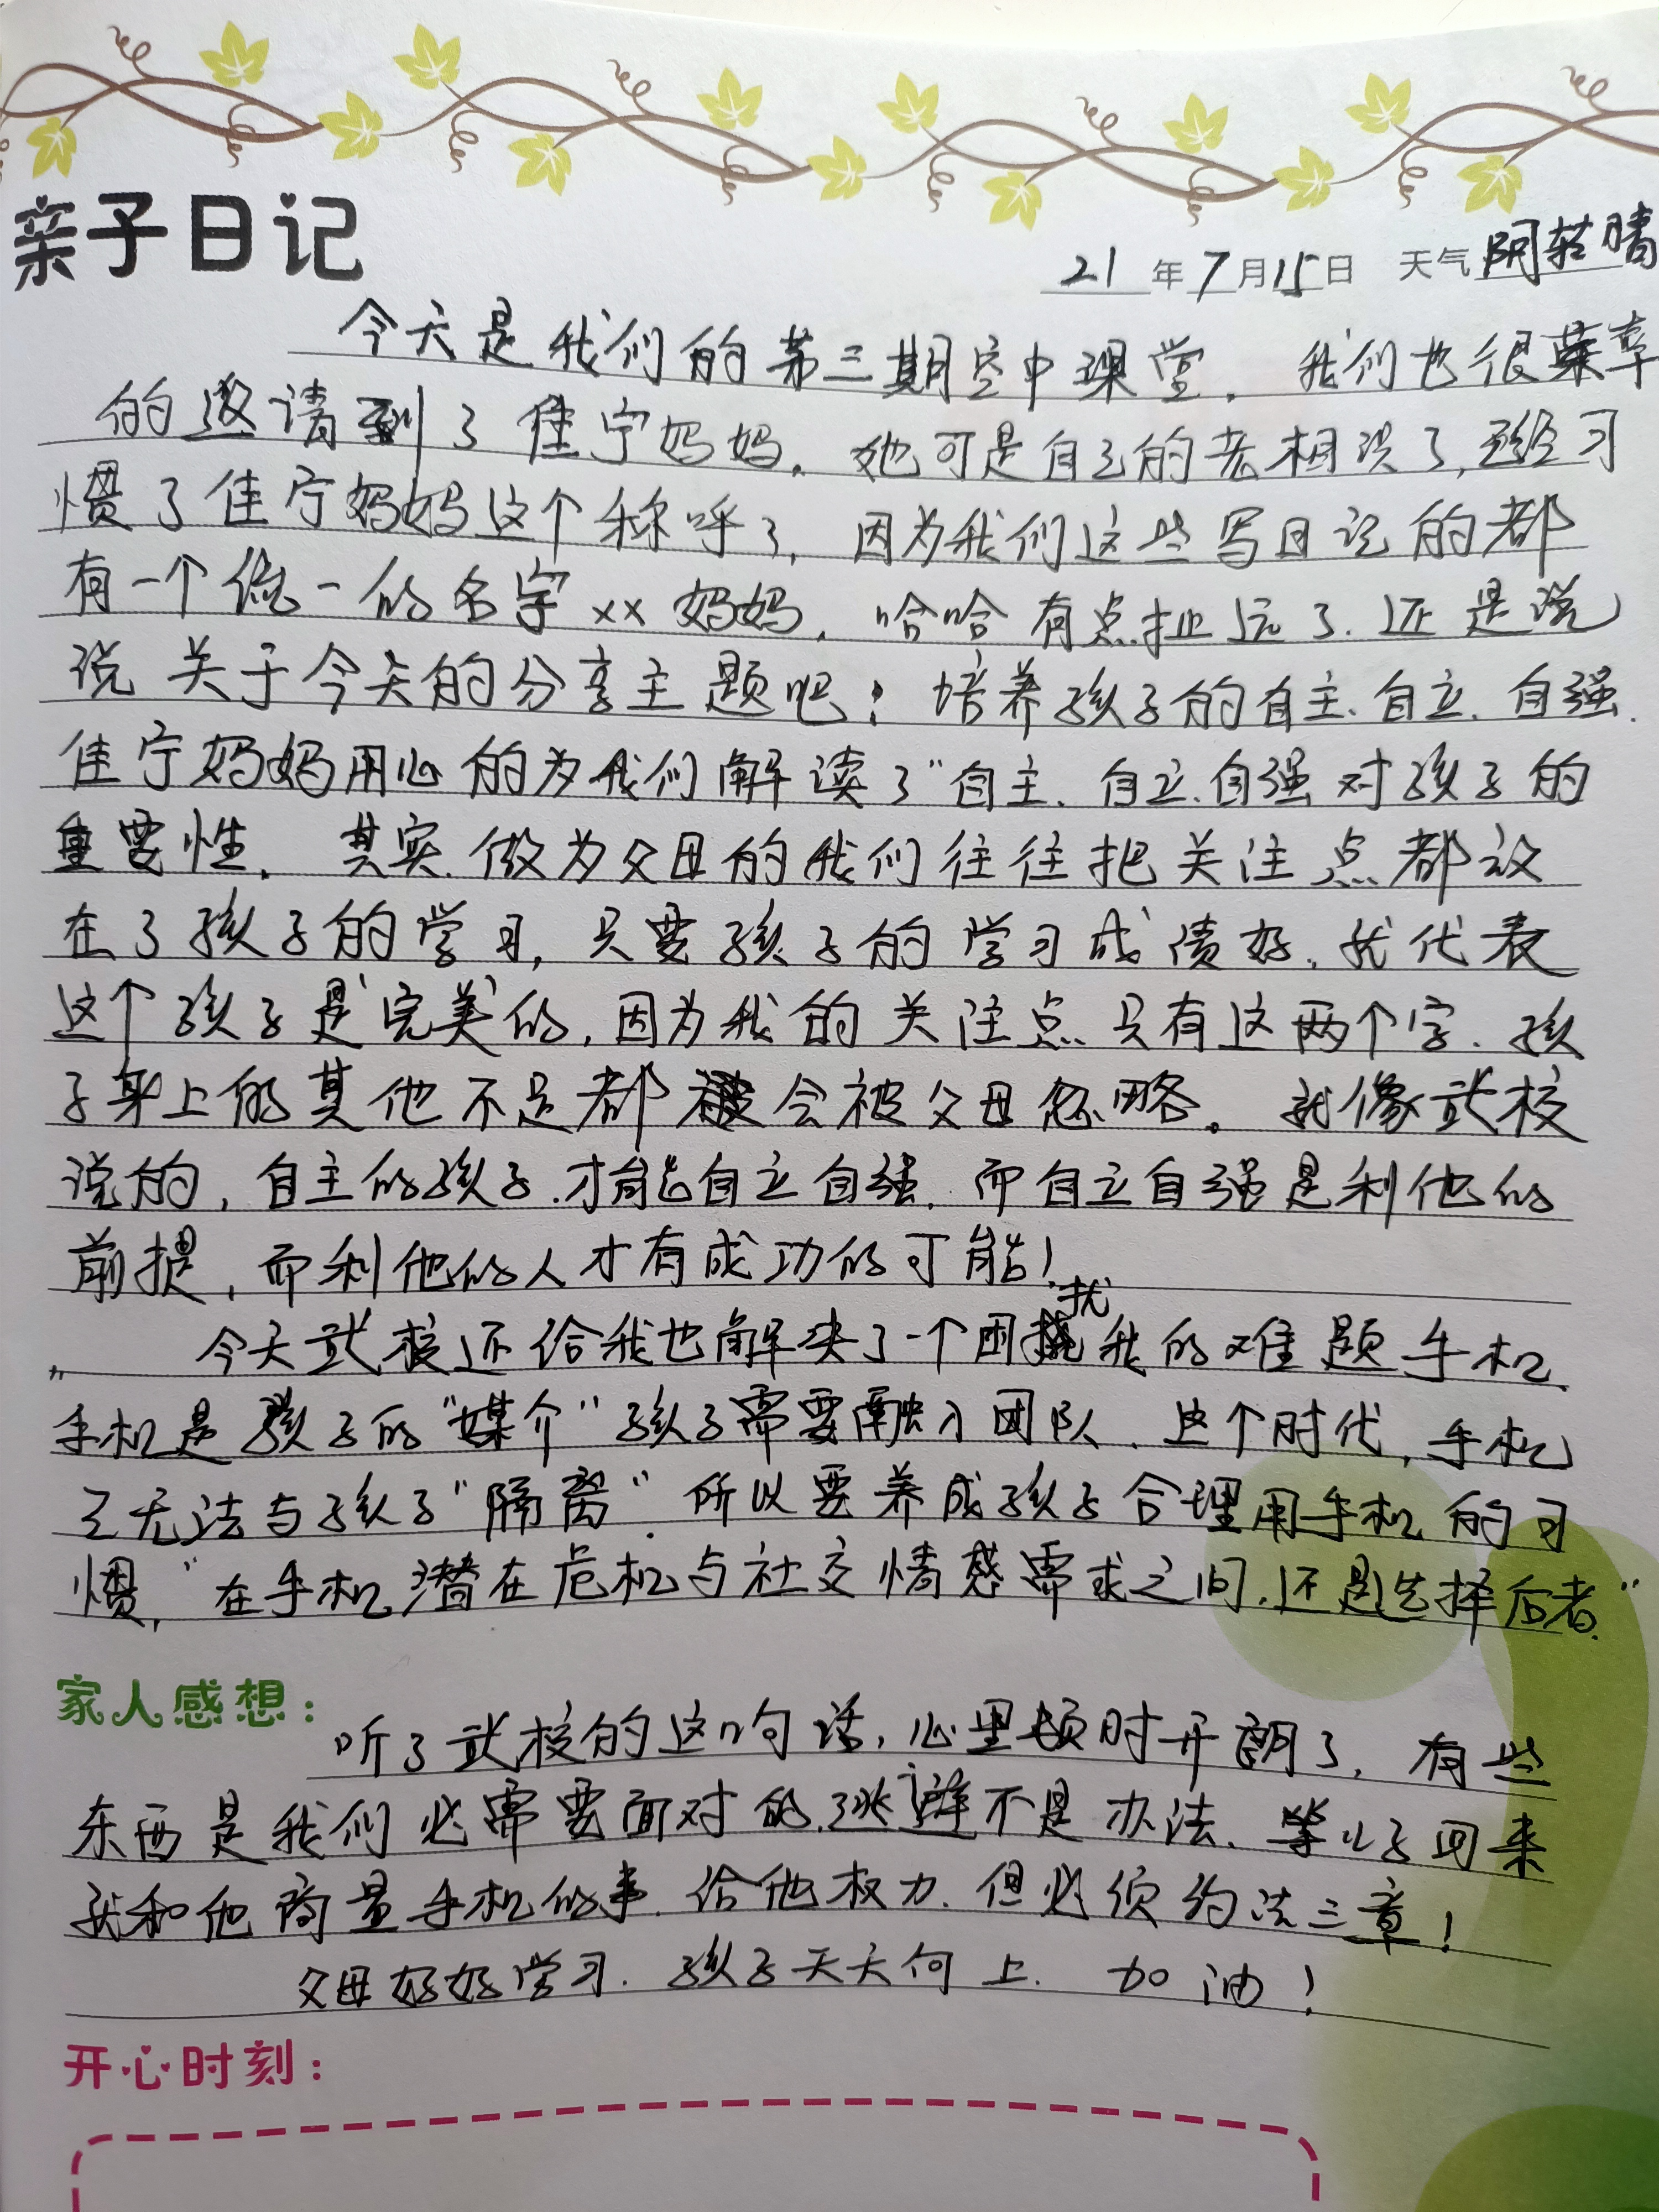 亲子日记
21年7月15日 天气 阴转晴
今天是我们的第三期空中课堂，我们也很荣幸
的邀请到了佳宁妈妈，她可是自己的老相识了，已经习
惯了佳宁妈妈这个称呼了，因为我们这些写日记的都
有一个统一的名字xx妈妈，哈哈有点扯远了，还是说
说关于今天的分享主题吧：培养孩子的自主、自立、自强.
佳宁妈妈用心的为我们解读了“自主、自立、自强对孩子的
重要性。其实，做为父母的我们往往把关注点都放
在了孩子的学习，只要孩子的学习成绩好，就代表
这个孩子是“完美”的，因为我的关注点只有这两个字，孩
子身上的其他不足都会被父母忽略。就像武校
说的，自主的孩子，才能自立自强，而自立自强是利他的
前提，而利他的人才有成功的可能！
今天武校还给我也解决了一个困扰我的难题手机，
手机是孩子的“媒介”孩子需要融入团队，这个时代，手机
已无法与孩子“隔离”，所以要养成孩子合理用手机的习
惯，“在手机潜在危机与社交情感需求之间，还是选择后者”.
家人感想：
听了武校的这句话，心里顿时开朗了，有些
东西是我们必需要面对的，逃避不是办法，等儿子回来
就和他商量手机的事，给他权力，但必须约法三章！
父母好好学习，孩子天天向上，加油！
开心时刻：